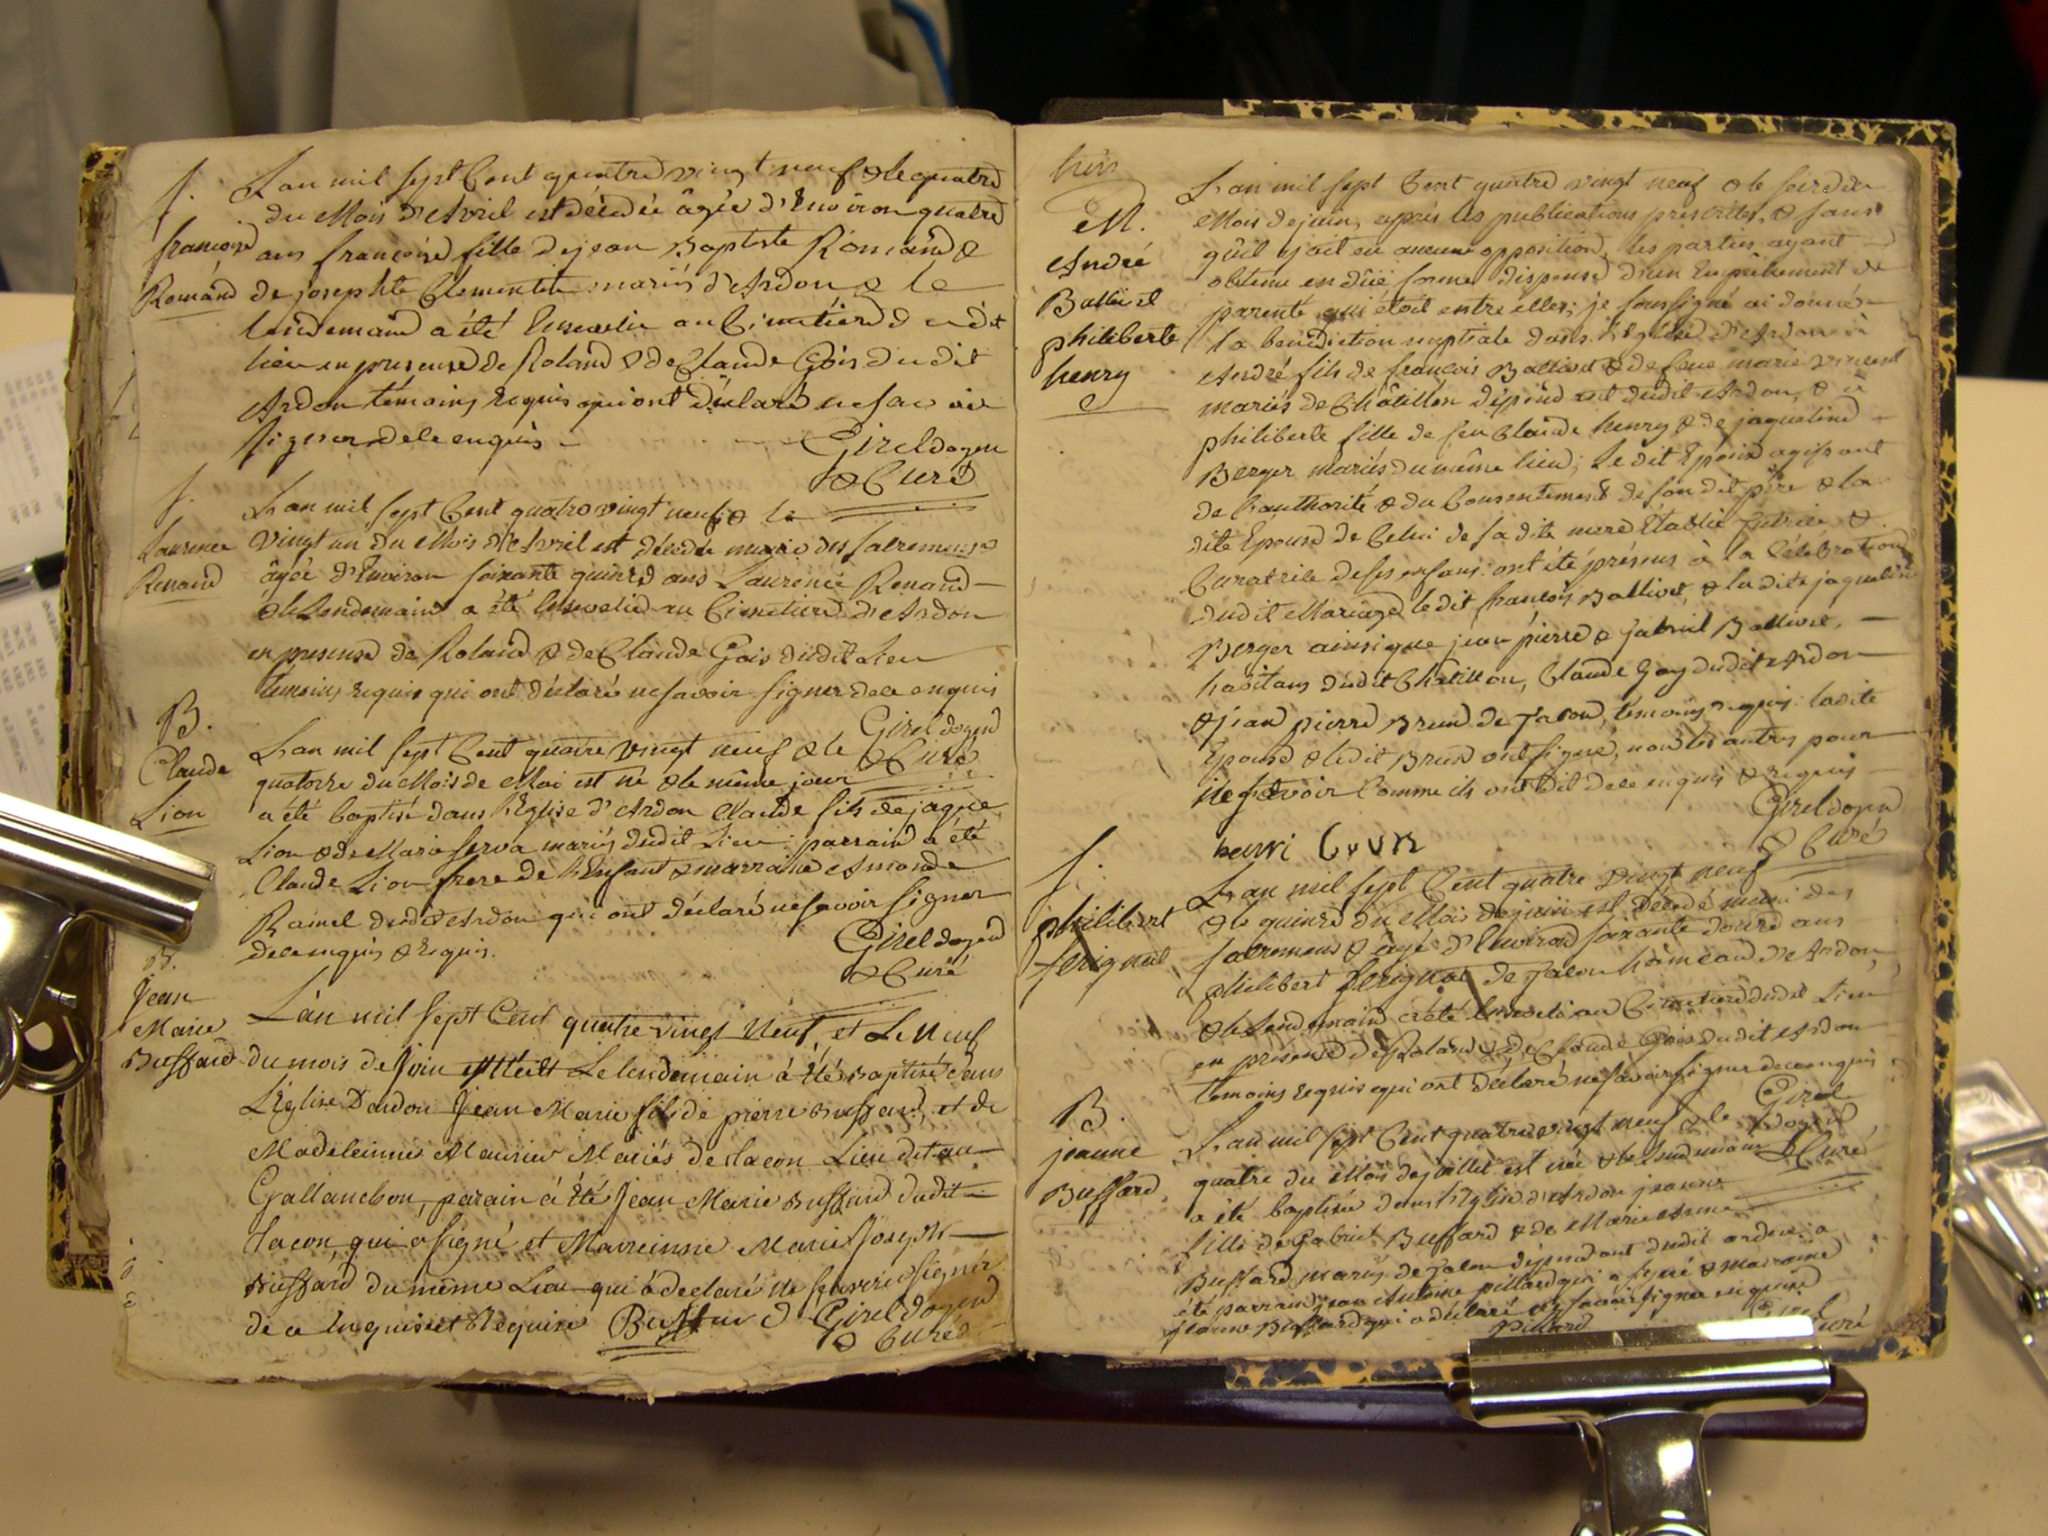 S.
françoise
Romand
L'an mil sept Cent quatre vingt neuf & le quatre
du Mois d'Avril est décédée âgée d'Environ quatre
ans françoise fille de jean Baptiste Romand &
de josephte Clementin mariés d'Ardon & le
lendemain a été Ensevelie au Cimetiere dudit
lieu en presence de Roland & de Claude Gois dudit
Ardon témoins requis qui ont déclaré ne savoir
signer de ce enquis
Girel doyen
& Curé
S.
Laurence
Renaud
L'an mil sept Cent quatre vingt neuf & le
vingt un du Mois d'Avril est décédée munie des sacremens
âgée d'Environ soixante quinze ans Laurence Renaud
& le Lendemain a été Ensevelie au Cimetiere d'Ardon
en presence de Roland & de Claude Gois dudit Lieu
témoins requis qui ont déclaré ne savoir signer de ce enquis
Girel doyen
& Curé
B.
Claude
Lion
L'an mil sept Cent quatre vingt neuf & le
quatorze du Mois de Mai est né & le même jour
a été baptisé dans l'Eglise d'Ardon Claude fils de jaque
Lion & de Marie Serva mariés dudit Lieu: parrain a été
Claude Lion frere de l'Enfant & marraine
Ramel dudit Ardon qui ont déclaré ne savoir signer
de ce enquis & requis.
Girel doyen
& Curé
B.
Jean
Marie
Buffard
L'an mil sept Cent quatre vingt Neuf, et Le Neuf
du mois de Join Le lendemain à été Baptisé dans
L'Eglise D'ardon Jean Marie fils de pierre Buffard, et de
Madeleinne Maurier Mariés de tacon Lieu dit au
Gallanchon, parain à été Jean Marie Buffard dudit
tacon, qui à signé et Marreinne Marie Joseph
Buffard du même Lieu qui à déclaré ne scavoir signér
de ce Enquise et Requise Buffard Girel doyen
& Curé
M.
André
Ballivet
philiberte
henry
L'an mil sept Cent quatre vingt neuf & le seize du
Mois de juin, après les publications prescrites, & sans
qu'il y ait eu aucune opposition, les parties ayant
obtenu en dûe forme dispense d'un Empêchement de
parenté qui étoit entre elles; je soussigné ai donné
la bénédiction nuptiale dans l'Eglise d'Ardon à
André fils de françois Ballivet & de feue marie vincent
mariés de Châtillon dépendant dudit Ardon, & à
philiberte fille de feu Claude henry & de jaqueline
Berger mariés du même lieu; Le dit Epoux agissant
de l'authorité & du Consentement de son dit père & la
dite Epouse de Celui de sa dite mere Etablie tutrice &
Curatrice de ses enfans: ont été présens à la Célébration
dudit Mariage ledit françois Ballivet, & la dite jaqueline
Berger ainsi que jean pierre & gabriel Ballivet,
habitans dudit Chatillon, Claude Goy dudit Ardon
& jean pierre Brun de Tacon, témoins requis: ladite
Epouse & ledit Brun ont signé, non les autres pour
ne savoir Comme ils ont dit de ce enquis & requis
Girel doyen
& Curé
henri brun
S.
philibert
L'an mil sept Cent quatre vingt neuf
& le quinze du Mois de juin est décédé muni des
sacremens & agé d'Environ soixante douze ans
philibert de Tacon hameau d'Ardon,
& le Lendemain a été Enseveli au Cimetiere dudit Lieu
en présence de Roland & de Claude Gois dudit Ardon
témoins requis qui ont déclaré ne savoir signer de ce enquis
Girel
doyen
& Curé
B.
jeanne
Buffard
L'an mil sept Cent quatre vingt neuf & le
quatre du Mois de juillet est née & le Lendemain
a été baptisée dans l'Eglise d'Ardon jeanne
fille de Gabriel Buffard & de Marie Anne
Buffard mariés de Tacon dépendant dudit ardon: a
été parrain jean Antoine pillard qui a signé & marraine
jeanne Buffard qui a déclaré ne savoir signer enquise
pillard
Girel
Curé